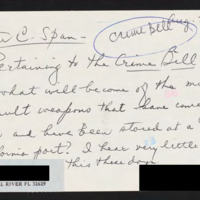 Aug.
Crime Bell
C. Span –
ertaining to the Crime Bill
what will become of the m
ult weapons that have come
and have been stored at a
ornia port? I hear very little
this these days.
L RIVER FL 32629